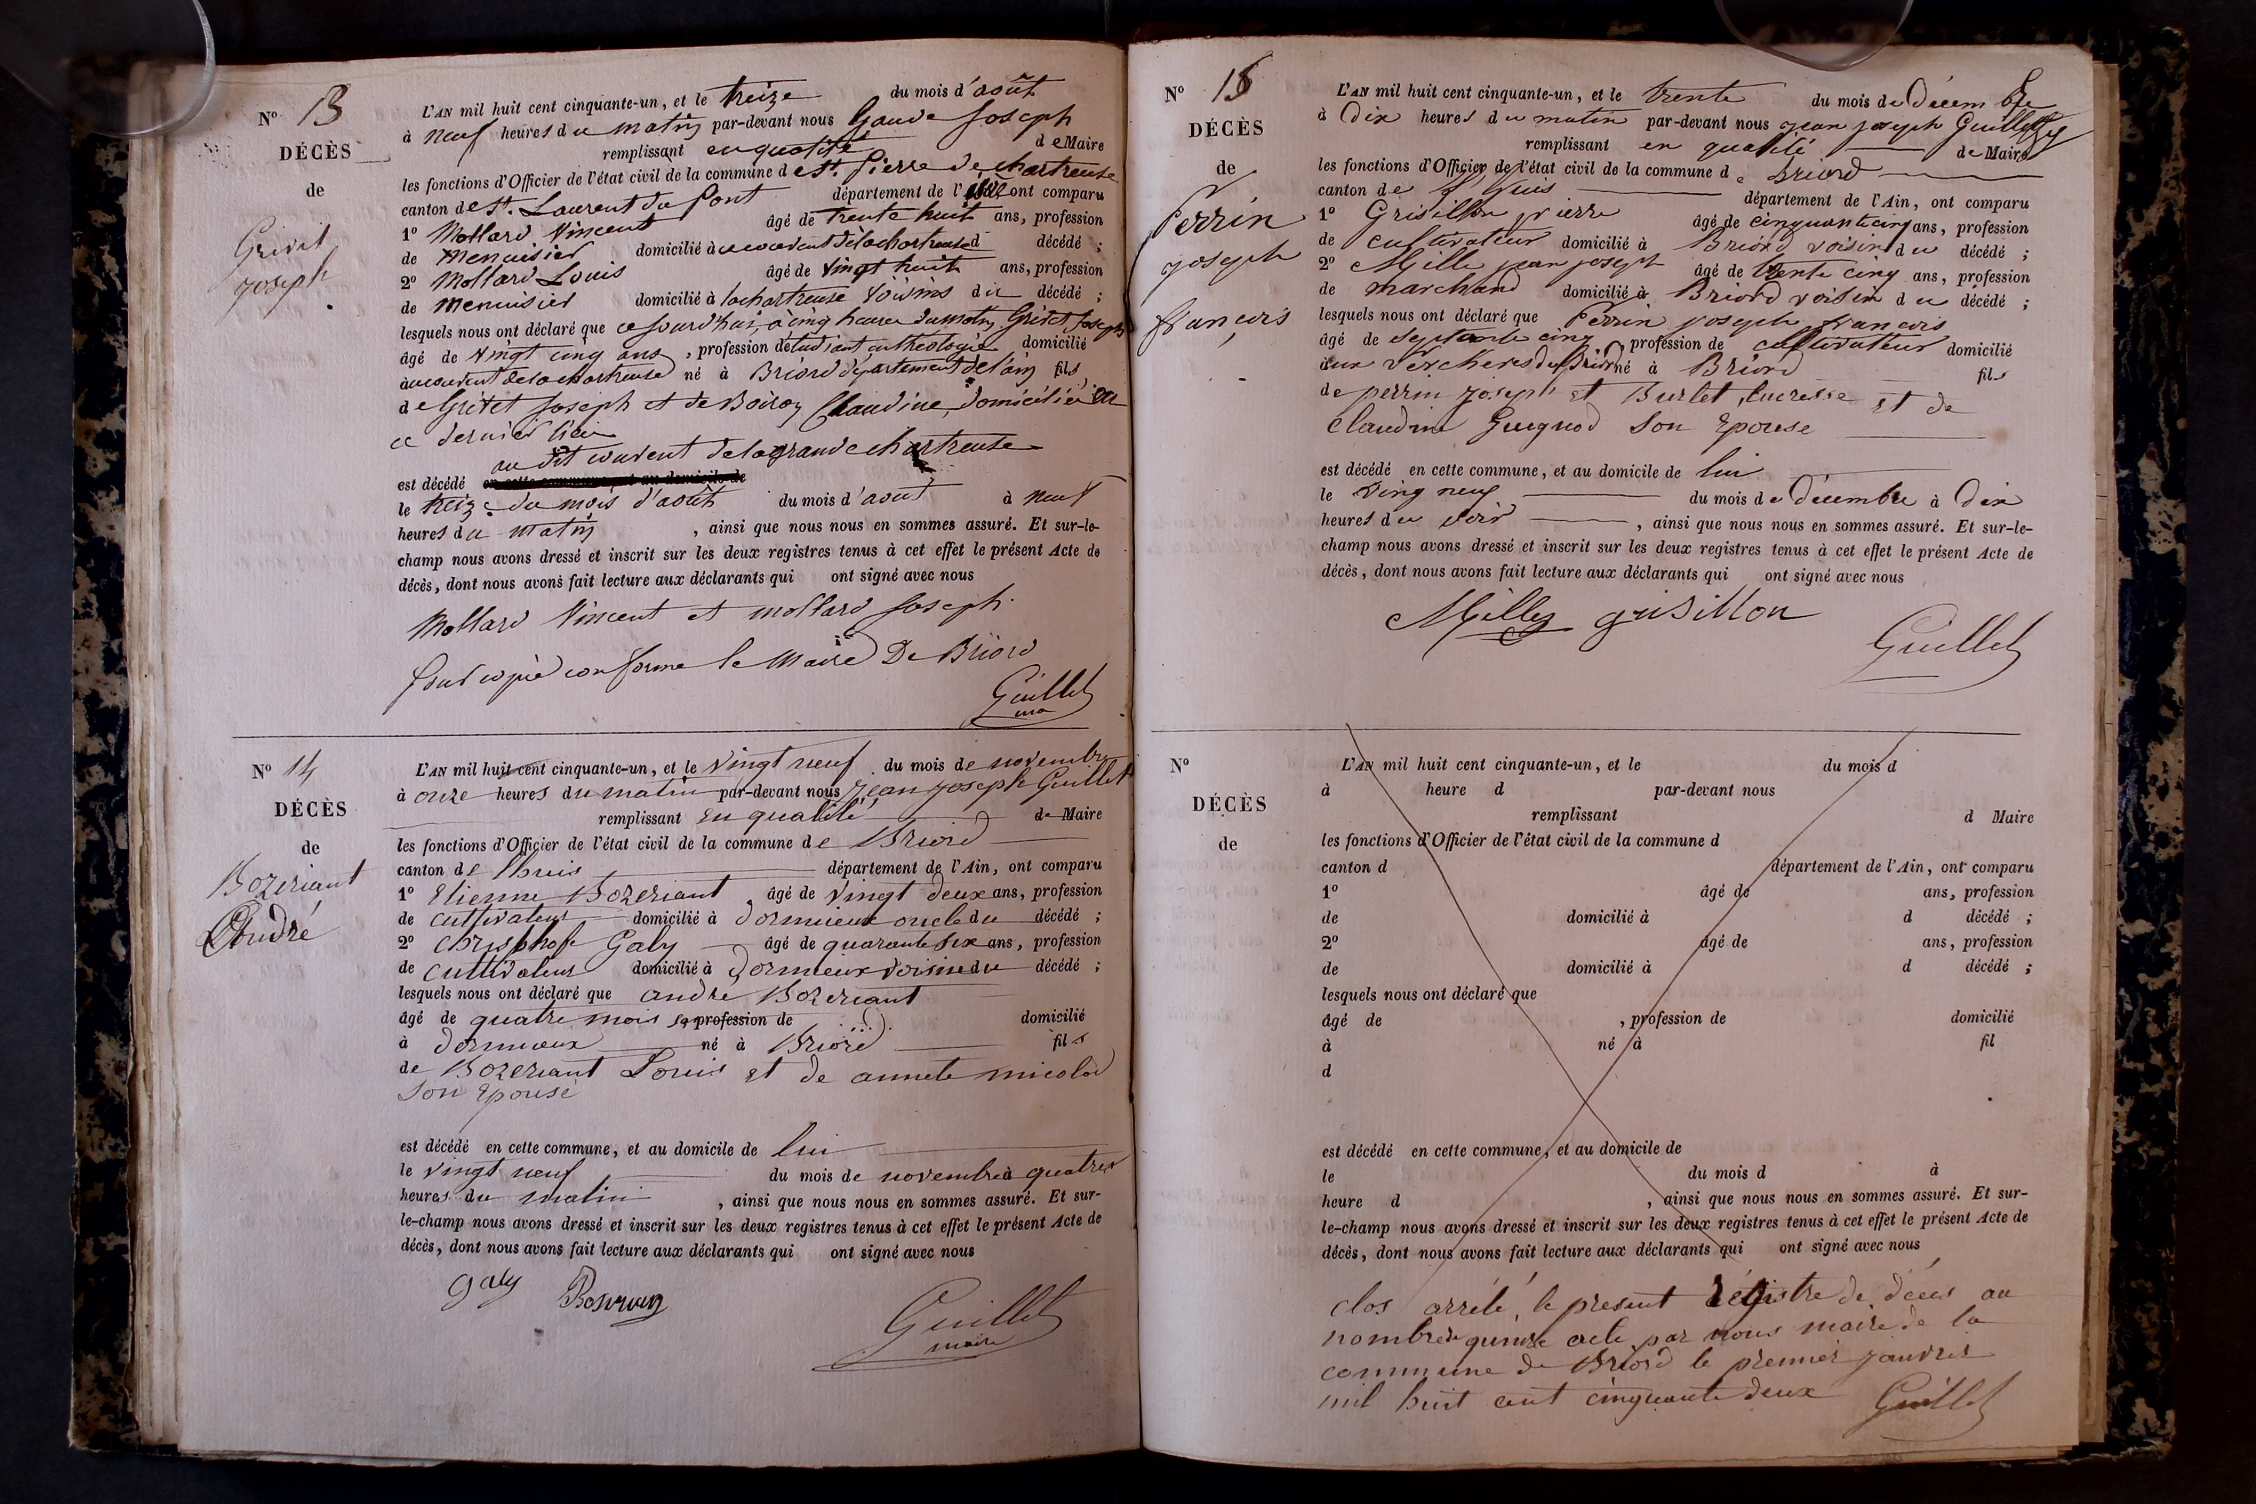 N° 13
DÉCÈS
de
Grivet
Joseph
L'AN mil huit cent cinquante-un, et le treize du mois d'août
à neuf heures du matin par-devant nous Gaude Joseph
remplissant en qualité de Maire
les fonctions d'Officier de l'état civil de la commune de St. Pierre de chartreuse
canton de St. Laurent du Pont département de l' ont comparu
1° Mollard Vincent âgé de trente huit ans, profession
de menuisier domicilié à couvent de la chartreuse d décédé ;
2° Mollard Louis âgé de vingt huit ans, profession
de menuisier domicilié à la chartreuse voisins du décédé ;
lesquels nous ont déclaré que ce jourd'hui, à cinq heures du matin Grivet Joseph
âgé de vingt cinq ans, profession d'étudiant en théologie domicilié
au couvent de la chartreuse né à Briord département de l'ain fils
de Grivet Joseph et de Boiron Claudine, domiciliés en
ce dernier lieu
au dit couvent de la grande chartreuse
est décédé en cette commune, et au domicile de
le treize du mois d'août du mois d'août à neuf
heures du matin, ainsi que nous nous en sommes assuré. Et sur-le-
champ nous avons dressé et inscrit sur les deux registres tenus à cet effet le présent Acte de
décès, dont nous avons fait lecture aux déclarants qui ont signé avec nous
Mollard Vincent et mollard Joseph.
pour copie conforme le Maire De Briord
Guillet
N° 14
DÉCÈS
de
Bozeriant
André
L'AN mil huit cent cinquante-un, et le vingt neuf du mois de novembre
à onze heures du matin par-devant nous Jean Joseph Guillet
remplissant en qualité de Maire
les fonctions d'Officier de l'état civil de la commune de Briord
canton de lhuis département de l'Ain, ont comparu
1° Etienne Bozeriant âgé de vingt deux ans, profession
de cultivateur domicilié à dormieux oncle du décédé ;
2° Christophe Galy âgé de quarante six ans, profession
de cultivateur domicilié à dormieux voisin du décédé ;
lesquels nous ont déclaré que andré Bozeriant
âgé de quatre mois sa profession de domicilié
à dormieux né à Briord fils
de Bozeriant Louis et de annete micolod
son Epouse
est décédé en cette commune, et au domicile de lui
le vingt neuf du mois de novembre à quatres
heures du matin, ainsi que nous nous en sommes assuré. Et sur-
le-champ nous avons dressé et inscrit sur les deux registres tenus à cet effet le présent Acte de
décès, dont nous avons fait lecture aux déclarants qui ont signé avec nous
galy
Guillet
maire
N° 15
DÉCÈS
de
Perrin
joseph
françois
L'AN mil huit cent cinquante-un, et le trente du mois de décembre
à Dix heures du matin par-devant nous jean joseph Guillet
remplissant en qualité de Maire
les fonctions d'Officier de l'état civil de la commune de Briord
canton de lhuis département de l'Ain, ont comparu
1° Grisillon pierre âgé de cinquante cinq ans, profession
de cultivateur domicilié à Briord voisin du décédé ;
2° Mille jean joseph âgé de trente cinq ans, profession
de marchand domicilié à Briord voisin du décédé ;
lesquels nous ont déclaré que Perrin joseph françois
âgé de septante cinq profession de cultivateur domicilié
aux Vercheres de Briord né à Briord fils
de perrin joseph et Burlet, lucresse et de
claudine Guignod son Epouse
est décédé en cette commune, et au domicile de lui
le Ving neuf du mois de décembre à Dix
heures du soir, ainsi que nous nous en sommes assuré. Et sur-le-
champ nous avons dressé et inscrit sur les deux registres tenus à cet effet le présent Acte de
décès, dont nous avons fait lecture aux déclarants qui ont signé avec nous
Milley grisillon
Guillet
N°
DÉCÈS
de
L'AN mil huit cent cinquante-un, et le du mois d
à heure d par-devant nous
remplissant d Maire
les fonctions d'Officier de l'état civil de la commune d
canton d département de l'Ain, ont comparu
1° âgé de ans, profession
de domicilié à d décédé ;
2° âgé de ans, profession
de domicilié à d décédé ;
lesquels nous ont déclaré que
âgé de , profession de domicilié
à né à fil
d
est décédé en cette commune, et au domicile de
le du mois d à
heure d , ainsi que nous nous en sommes assuré. Et sur-
le-champ nous avons dressé et inscrit sur les deux registres tenus à cet effet le présent Acte de
décès, dont nous avons fait lecture aux déclarants qui ont signé avec nous
clos arrété, le present Régistre de décés au
nombre de quinze acte par nous maire de la
commune de Briord le premier janvier
mil huit cent cinquante deux Guillet